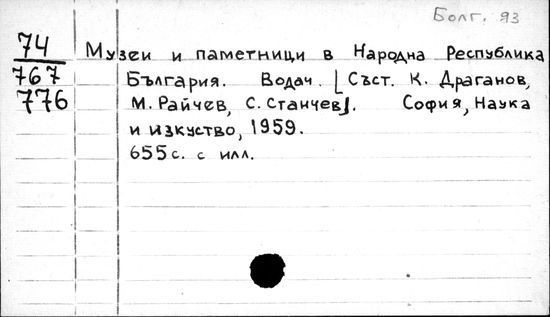 Болг. 93
74
767
776
Музеи и паметници в Народна Република
България. Водач. [Съст. К. Драганов,
М. Райчев, С. Станчев]. София, Наука
и изкуство, 1959.
655с. с илл.